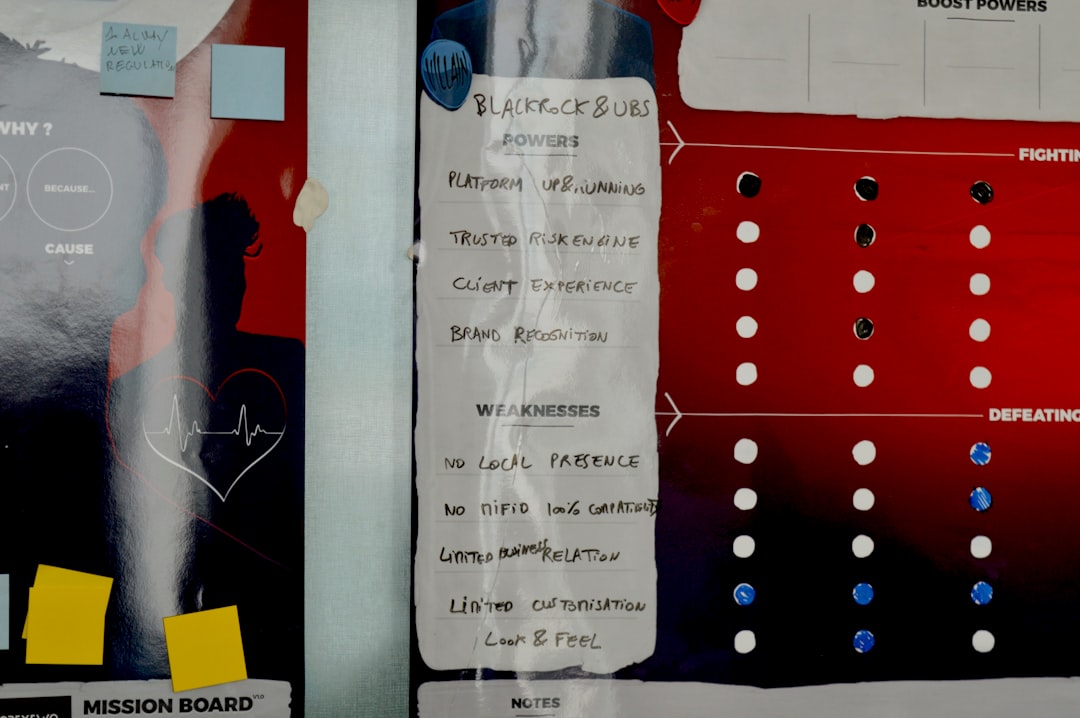 BOOST POWERS
ALWAY
NEW
REGULATION
VILLAIN
BLACKROCK & UBS
WHY ?
NT
BECAUSE...
CAUSE
POWERS
FIGHTIN
PLATFORM UP & RUNNING
TRUSTED RISK ENGINE
CLIENT EXPERIENCE
BRAND RECOGNITION
WEAKNESSES
DEFEATING
NO LOCAL PRESENCE
NO MIFID 100% COMPATIBILITY
LIMITED BUSINESS RELATION
LIMITED CUSTOMISATION
LOOK & FEEL
MISSION BOARD V1.0
NOTES